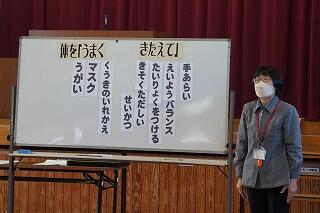 体を守うまく
きたえて
手あらい
えいようバランス
たいりょくをつける
きそくただしい
せいかつ
くうきのいれかえ
マスク
うがい